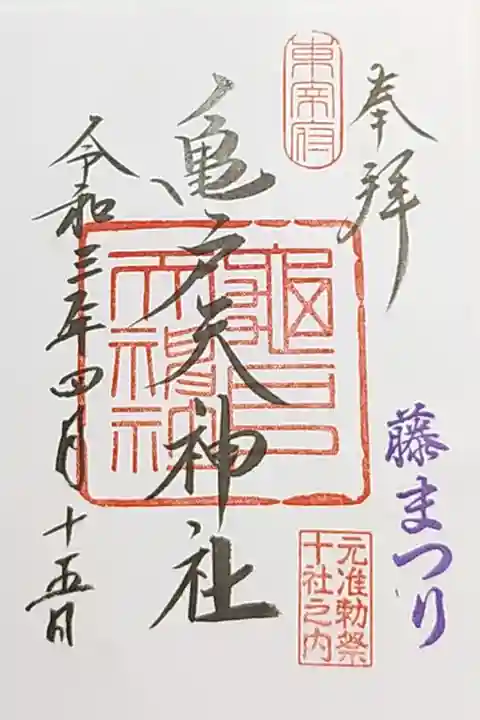 奉拝
藤まつり
東宰府
元准勅祭
十社之内
亀戸天神社
令和三年四月十五日